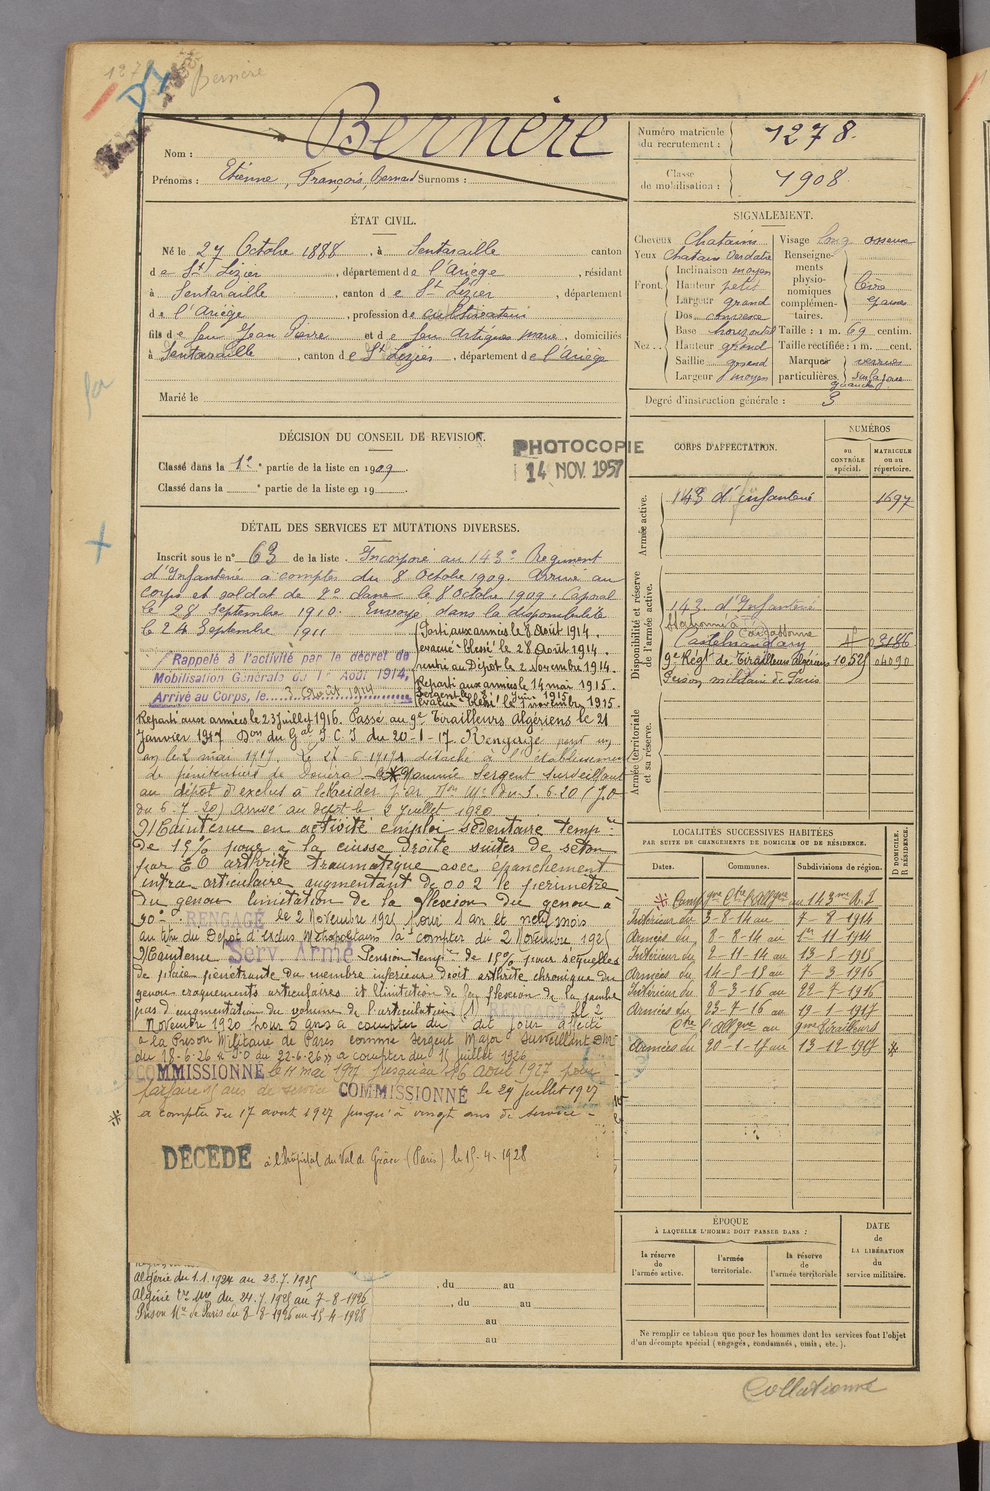 1278
Bernère
Nom : Bernère
Prénoms : Etienne, François, Bernard Surnoms :
Numéro matricule du recrutement : 1278.
Classe de mobilisation : 1908
ÉTAT CIVIL.
Né le 27 Octobre 1888, à Sentaraille canton
de St Lizier, département de l'Ariège, résidant
à Sentaraille, canton de St Lizier, département
de l'Ariège, profession de cultivateur
fils de feu Jean Pierre et de feu Artigues Marie, domiciliés
à Sentaraille, canton de St Lizier, département de l'Ariège
Marié le
SIGNALEMENT.
Cheveux Chatains
Yeux Chatain Verdatre
Front. Inclinaison moyen
Hauteur petit
Largeur grand
Nez. Dos convexe
Base horizontal
Hauteur grand
Saillie grand
Largeur moyen
Visage long osseux
Renseignements physionomiques complémentaires. lèvre épaisse
Taille : 1 m. 69 centim.
Taille rectifiée : 1 m. cent.
Marques particulières verrues sur la joue gauche
Degré d'instruction générale : 3
DÉCISION DU CONSEIL DE REVISION.
Classé dans la 1e partie de la liste en 1909.
Classé dans la partie de la liste en 19
PHOTOCOPIE
14 NOV. 1957
DÉTAIL DES SERVICES ET MUTATIONS DIVERSES.
Inscrit sous le n° 63 de la liste. Incorporé au 143e Régiment
d'Infanterie à compter du 8 Octobre 1909. Arrivé au
corps et soldat de 2e classe le 8 Octobre 1909. Caporal
le 28 Septembre 1910. Envoyé dans la disponibilité
le 24 Septembre 1911
Rappelé à l'activité par le décret de
Mobilisation Générale du 1er Août 1914,
Arrivé au Corps, le 3 Août 1914
Parti aux armées le 8 Août 1914.
évacué "blessé" le 28 Août 1914.
rentré au Dépôt le 2 novembre 1914.
Reparti aux armées le 14 mai 1915.
Sergent le 8 Juin 1915
évacué "blessé" le 1 novembre 1915.
Reparti aux armées le 23 Juillet 1916. Passé au 9e Tirailleurs Algériens le 21
Janvier 1917 Don du Gal I. C. I du 20-1-17. Rengagé pour un
an le 2 mai 1919. le 27-6-1919 détaché à l'établissement
de pénitenciers de Douéra. Nommé Sergent Surveillant
au dépôt d'exclus à Kreider par Don Mle du 3.6.20 (J.O
du 6-7-20) arrivé au dépôt le 9 Juillet 1920
Maintenu en activité emploi sédentaire tempre
de 15% pour à la cuisse droite suites de séton
par EO arthrite traumatique avec épanchement
intra articulaire augmentant de 0.02 le périmètre
du genou limitation de la flexion du genou à
90°. RENGAGÉ le 2 Novembre 1925 pour 1 an et neuf mois
au titre du Dépôt d'Exclus Métropolitains à compter du 2 Novembre 1925
Maintenu Serv. Armé Pension tempre de 15% pour séquelles
de plaie pénétrante du membre inférieur droit arthrite chronique du
genou craquements articulaires et limitation de la flexion de la jambe
pas d'augmentation du volume de l'articulation. RENGAGÉ le 2
Novembre 1920 pour 5 ans à compter du dit jour affecté
à la Prison Militaire de Paris comme Sergent Major Surveillant
du 18-6-26 «J.O du 22-6-26» à compter du 15 Juillet 1926
COMMISSIONNÉ le 11 mai 1927 jusqu'au 16 août 1927 pour
parfaire 15 ans de service COMMISSIONNÉ le 29 Juillet 1927
à compter du 17 août 1927 jusqu'à vingt ans de service -
DÉCÉDÉ à l'hôpital du Val de Grâce (Paris) le 15-4-1928
Algérie du 1.1.1924 au 23.7.1925
Algérie du 24.7.1925 au 7-8-1926
Prison Mre de Paris du 8-8-1926 au 15-4-1928
, du au
, du au
au
au
CORPS D'AFFECTATION.
NUMÉROS
au CONTRÔLE spécial.
MATRICULE ou au répertoire.
Armée active.
143 d'infanterie 1697
Disponibilité et réserve de l'armée active.
143. d'Infanterie
Carcassonne
Castelnaudary 02186
9e Régt de Tirailleurs Algériens 10.525 04090
Prison militaire de Paris
Armée territoriale et sa réserve.
LOCALITÉS SUCCESSIVES HABITÉES
PAR SUITE DE CHANGEMENTS DE DOMICILE OU DE RÉSIDENCE.
Dates. Communes. Subdivisions de région. D DOMICILE. R RÉSIDENCE.
Campgne Ctre l'Allgne au 143me R.I
Intérieur du 3-8-14 au 7-8-1914
Armées du 8-8-14 au 1er 11-1914
Intérieur du 2-11-14 au 13-5-1915
Armées du 14-5-15 au 7-3-1916
Intérieur du 8-3-16 au 22-7-1916
Armées du 23-7-16 au 19-1-1917
Ctre l'Allgne au 9me Tirailleurs
Armées du 20-1-17 au 13-12-1917
ÉPOQUE
À LAQUELLE L'HOMME DOIT PASSER DANS :
la réserve de l'armée active.
l'armée territoriale.
la réserve de l'armée territoriale
DATE de LA LIBÉRATION du service militaire.
Ne remplir ce tableau que pour les hommes dont les services font l'objet
d'un décompte spécial (engagés, condamnés, omis, etc.).
Collationné